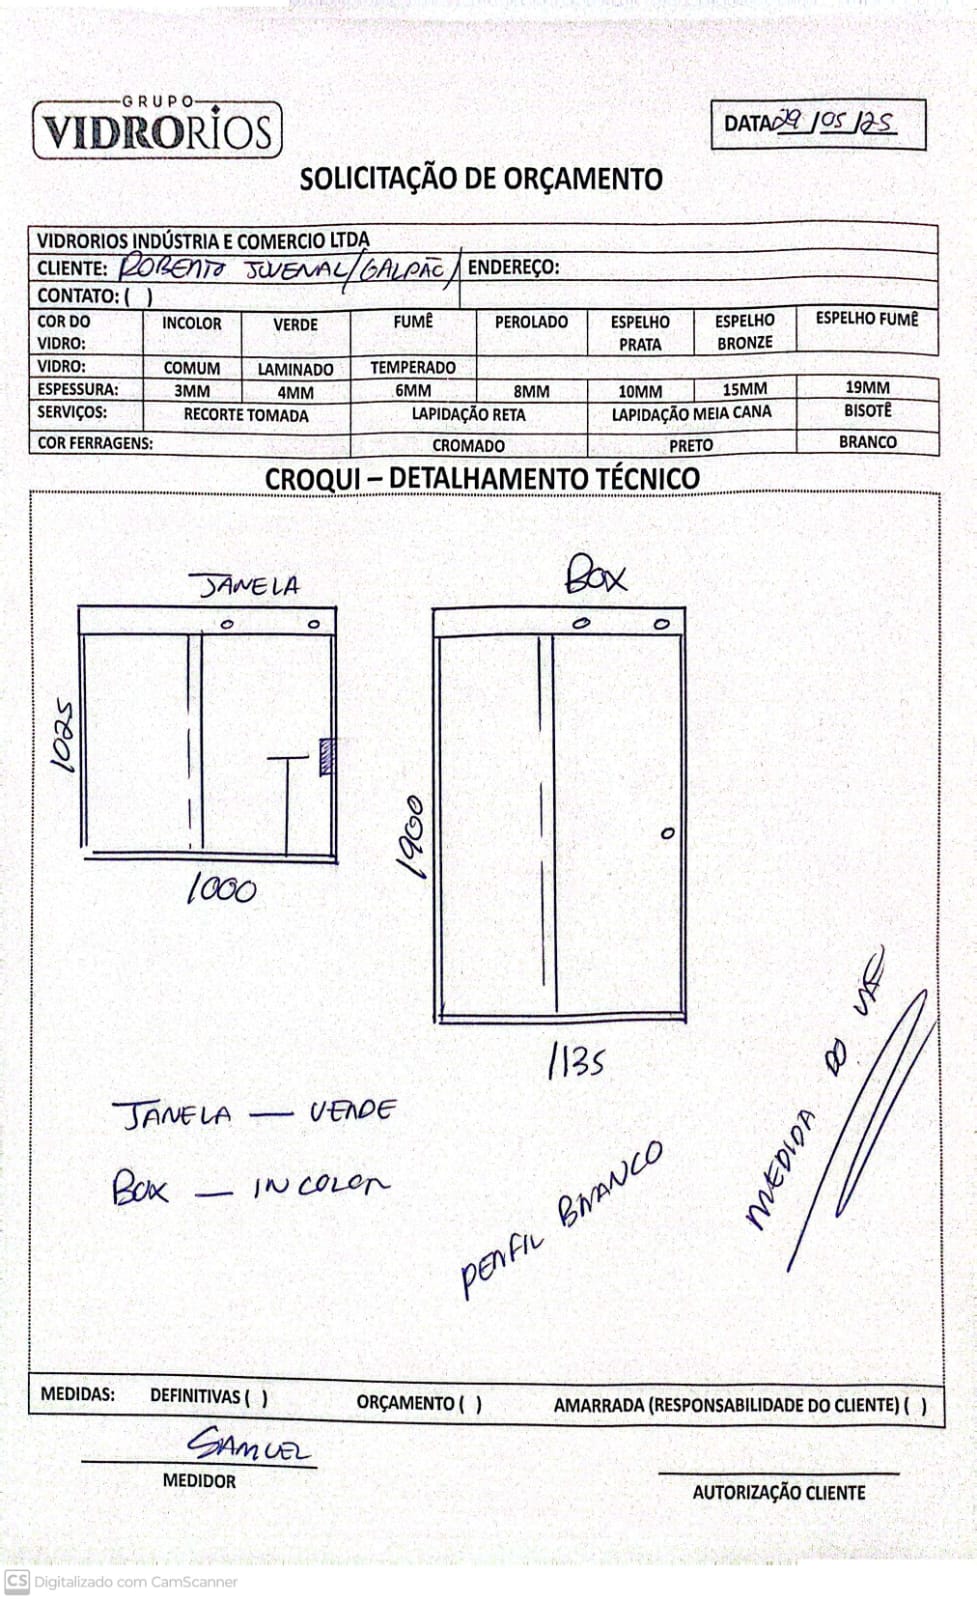 GRUPO
VIDRORIOS
DATA 29/05/25
SOLICITAÇÃO DE ORÇAMENTO
VIDRORIOS INDÚSTRIA E COMERCIO LTDA
CLIENTE: ROBERTO JUVENAL/GALPÃO/ ENDEREÇO:
CONTATO: ( )
COR DO VIDRO: INCOLOR VERDE FUMÊ PEROLADO ESPELHO PRATA ESPELHO BRONZE ESPELHO FUMÊ
VIDRO: COMUM LAMINADO TEMPERADO
ESPESSURA: 3MM 4MM 6MM 8MM 10MM 15MM 19MM
SERVIÇOS: RECORTE TOMADA LAPIDAÇÃO RETA LAPIDAÇÃO MEIA CANA BISOTÊ
COR FERRAGENS: CROMADO PRETO BRANCO
CROQUI – DETALHAMENTO TÉCNICO
JANELA
BOX
1025
1000
1900
1135
JANELA — VERDE
BOX — INCOLOR
PERFIL BRANCO
MEDIDA DO VÃO
MEDIDAS: DEFINITIVAS ( ) ORÇAMENTO ( ) AMARRADA (RESPONSABILIDADE DO CLIENTE) ( )
SAMUEL
MEDIDOR
AUTORIZAÇÃO CLIENTE
CS Digitalizado com CamScanner